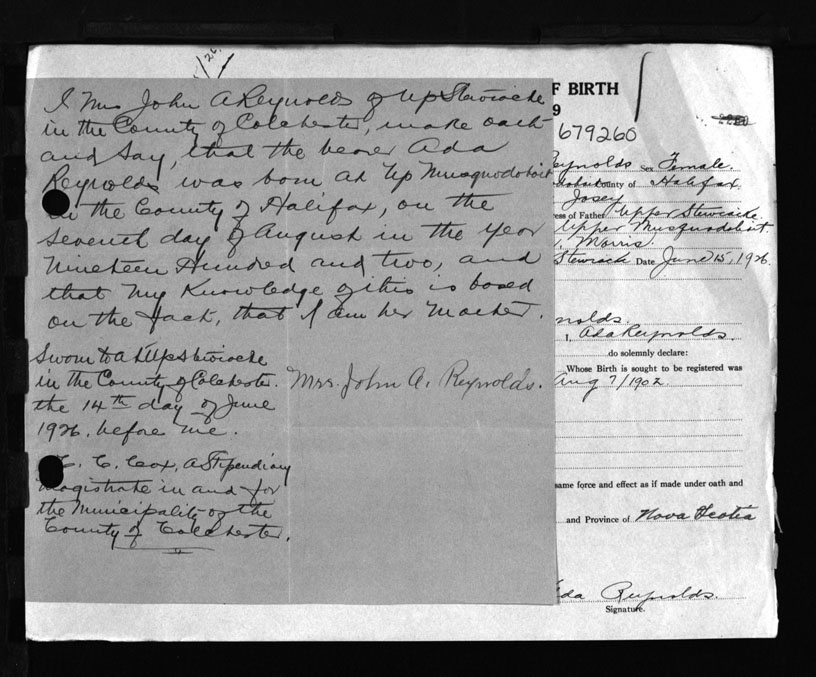 I Mrs John A Reynolds of Up Stewiacke
in the County of Colchester, make oath
and say, that the bearer Ada
Reynolds was born at Up Musquodoboit
in the County of Halifax, on the
seventh day of August in the year
Nineteen Hundred and two, and
that my Knowledge of this is based
on the fact, that I am her Mother.
Sworn to at Up Stewiacke
in the County of Colchester.
the 14th day of June
1926. before me.
Mrs. John A. Reynolds.
C. Cox, a Stipendiary
Magistrate in and for
the Municipality of the
County of Colchester.
F BIRTH
9
679260
eynolds Female.
ounty of Halifax.
Josey
ress of Father Upper Stewiacke.
Upper Musquodoboit
Morris.
Stewiack Date June 15, 1926.
nolds.
I, Ada Reynolds.
do solemnly declare:
Whose Birth is sought to be registered was
Aug 7/1902
same force and effect as if made under oath and
and Province of Nova Scotia
da Reynolds.
Signature.